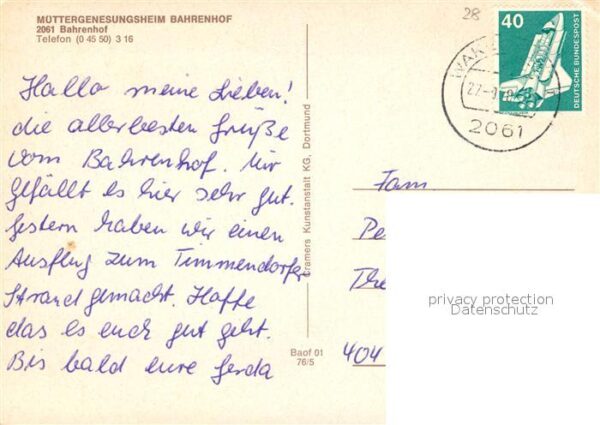 MÜTTERGENESUNGSHEIM BAHRENHOF
2061 Bahrenhof
Telefon (0 45 50) 3 16
Hallo meine Lieben!
die allerbesten Grüße
vom Bahrenhof. Mir
gefällt es hier sehr gut.
Gestern haben wir einen
Ausflug zum Timmendorfer
Strand gemacht. Hoffe
das es euch gut geht.
Bis bald eure Gerda
Cramers Kunstanstalt KG, Dortmund
Baof 01
76/5
28
40
DEUTSCHE BUNDESPOST
2061
Fam
Pe
The
404
privacy protection
Datenschutz